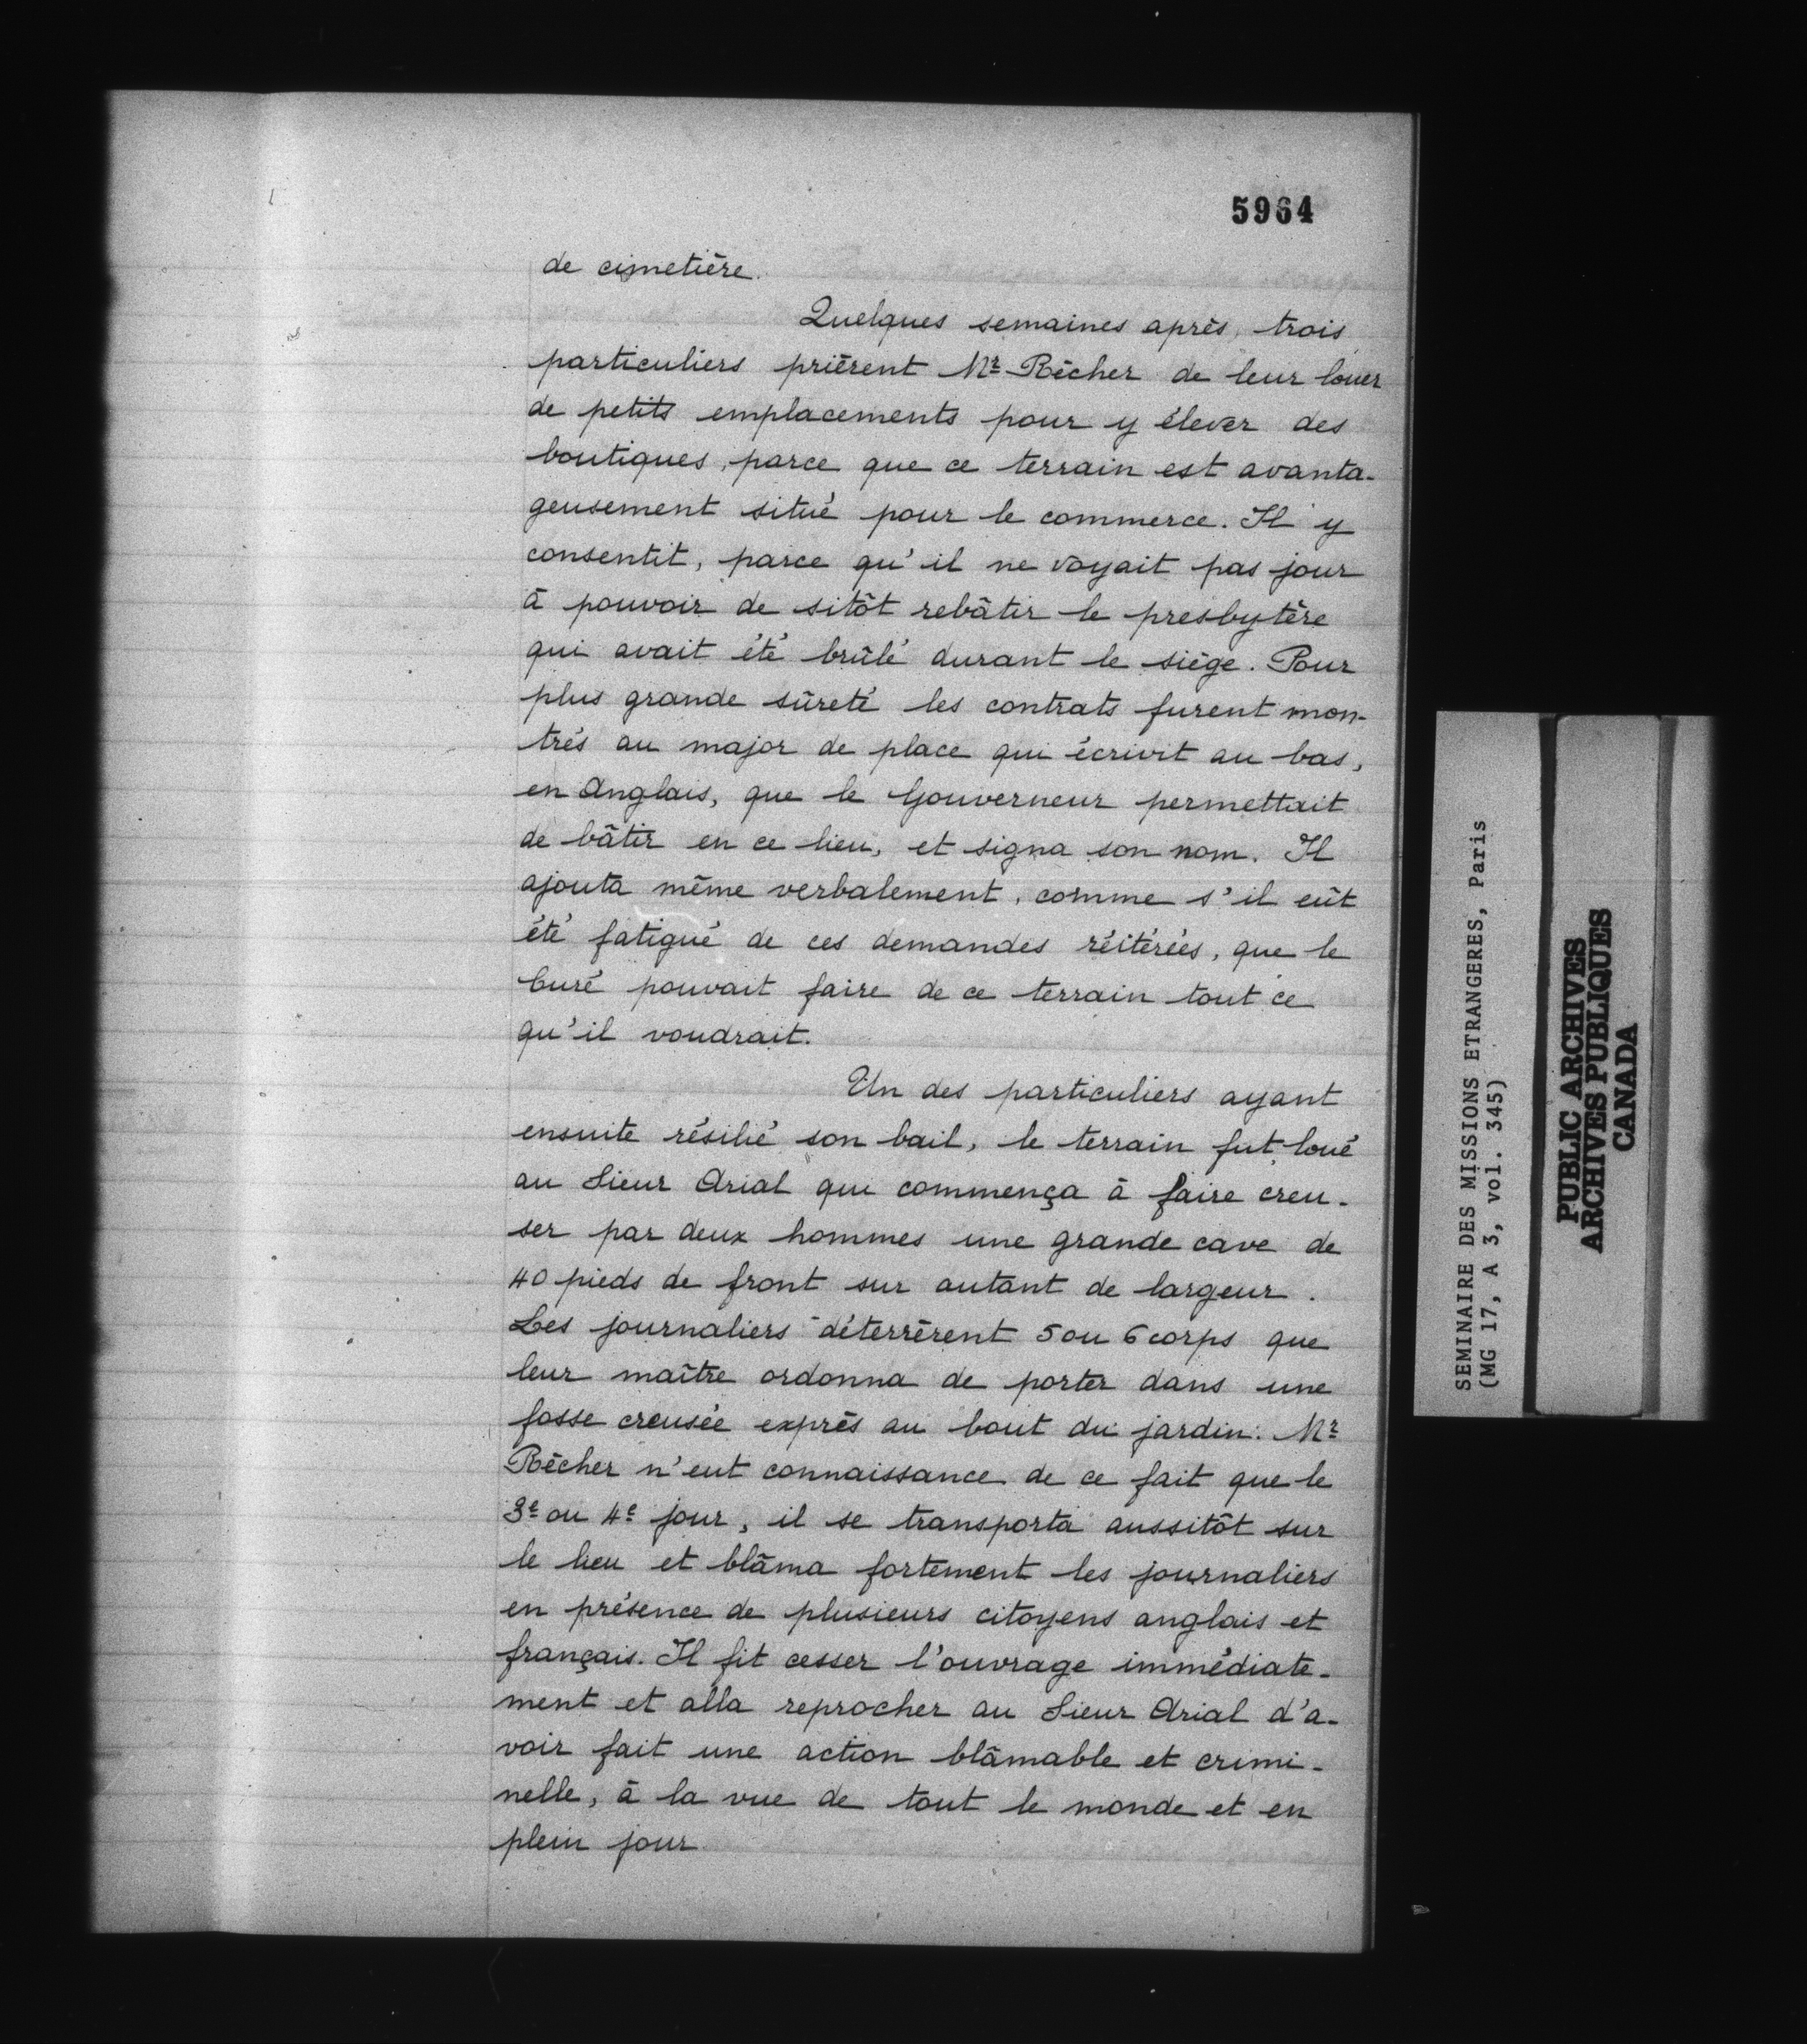 5964
de cimetière.
Quelques semaines après, trois
particuliers prièrent Mr Récher de leur louer
de petits emplacements pour y élever des
boutiques, parce que ce terrain est avanta-
geusement situé pour le commerce. Il y
consentit, parce qu'il ne voyait pas jour
à pouvoir de sitôt rebâtir le presbytère
qui avait été brûlé durant le siège. Pour
plus grande sûreté les contrats furent mon-
trés au major de place qui écrivit au bas,
en Anglais, que le Gouverneur permettait
de bâtir en ce lieu, et signa son nom. Il
ajouta même verbalement, comme s'il eût
été fatigué de ces demandes réitérées, que le
Curé pouvait faire de ce terrain tout ce
qu'il voudrait.
Un des particuliers ayant
ensuite résilié son bail, le terrain fut loué
au Sieur Arial qui commença à faire creu-
ser par deux hommes une grande cave de
40 pieds de front sur autant de largeur.
Les journaliers déterrèrent 5 ou 6 corps que
leur maître ordonna de porter dans une
fosse creusée exprès au bout du jardin. Mr
Récher n'eut connaissance de ce fait que le
3e ou 4e jour, il se transporta aussitôt sur
le lieu et blâma fortement les journaliers
en présence de plusieurs citoyens anglais et
français. Il fit cesser l'ouvrage immédiate-
ment et alla reprocher au Sieur Arial d'a-
voir fait une action blâmable et crimi-
nelle, à la vue de tout le monde et en
plein jour
SEMINAIRE DES MISSIONS ETRANGERES, Paris
(MG 17, A 3, vol. 345)
PUBLIC ARCHIVES
ARCHIVES PUBLIQUES
CANADA